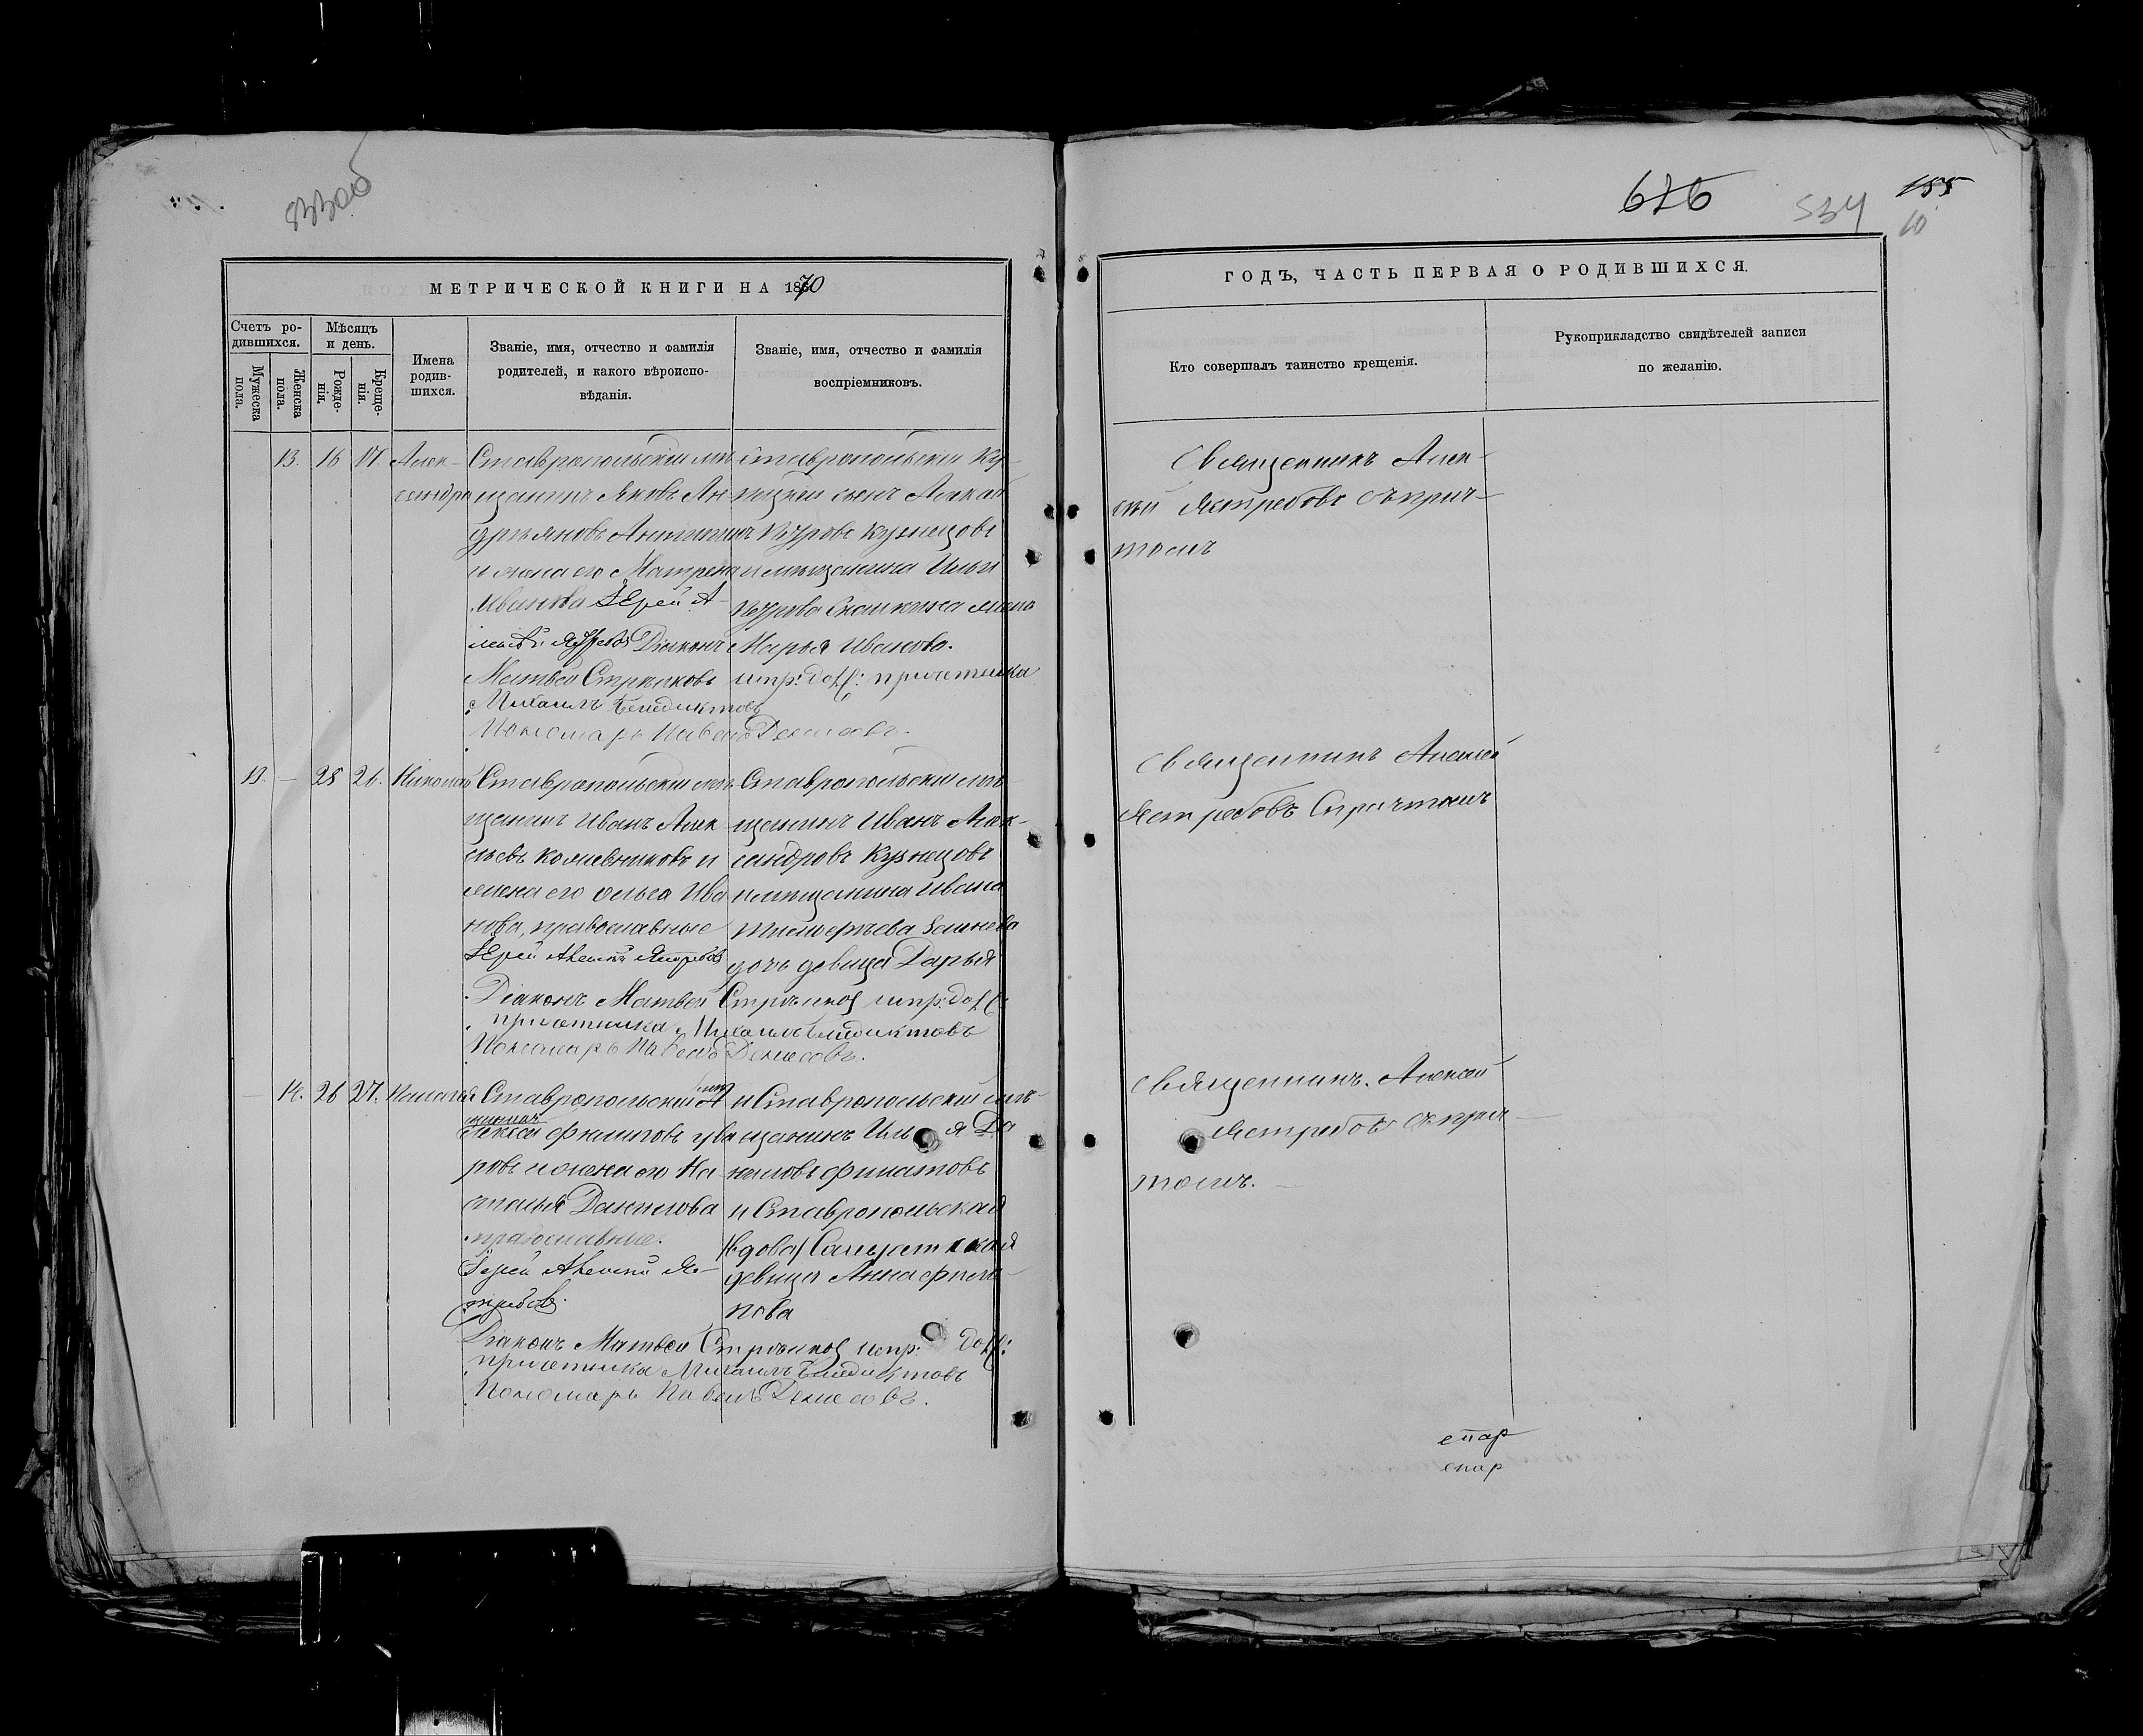 533об
626
534
155
10
МЕТРИЧЕСКОЙ КНИГИ НА 1870
Счетъ ро-
дившихся.
Мужеска
пола.
Женска
пола.
Мѣсяцъ
и день.
Рожде-
нія.
Креще-
нія.
Имена
родив-
шихся.
Званіе, имя, отчество и фамилія
родителей, и какого вѣроиспо-
вѣданія.
Званіе, имя, отчество и фамилія
воспріемниковъ.
13. 16 17. Алек-
сандра
Ставропольскій мѣ
щанинъ Яковъ Ан-
дріяновъ
и жена его Матрена
Иванова Іерей А-
Діаконъ
Матвей Стрелковъ
Михаилъ Бенедиктовъ
Пономарь Павелъ Денисовъ.
Ставропольскій Ку-
пецкій сынъ
Петровъ Кузнецовъ
и мѣщанина Ильи
Петрова жена
Марья Иванова.
испр: дол: причетника
13. — 28 21. Николай
Ставропольскій мѣ
щанинъ Иванъ Алек-
сѣевъ Кожевниковъ и
жена его Ольга Ива
нова, православные
Іерей Алексій Ястребовъ
Діаконъ Матвей Стрѣлков испр: дол:
причетника Михаилъ Бенедиктовъ
Пономарь Павелъ Денисовъ.
Ставропольскій мѣ-
щанинъ Иванъ Алек-
сандровъ Кузнецовъ
и мѣщанина Ивана
дочь девица Дарья
— 14. 26 27. Наталія
Ставропольскій мѣ
щанинъ
Алексѣй Филиповъ Ува
ровъ и жена его На
талья Данилова
православные.
Іерей Алексій Яс-
требовъ.
Діаконъ Матвей Стрѣлков испр: дол:
причетника Михаилъ Бенедиктовъ
Пономарь Павелъ Денисовъ.
и Ставропольскій мѣ-
щанинъ Илья Да
ниловъ Филатовъ
и Ставропольская
/вдова/ Солдатская
девица Анна
нова
ГОДЪ, ЧАСТЬ ПЕРВАЯ О РОДИВШИХСЯ.
Кто совершалъ таинство крещенія.
Рукоприкладство свидѣтелей записи
по желанію.
Священникъ Алек-
сѣй Ястребовъ съ прич-
томъ
Священникъ Алексей
Ястребовъ С причтомъ
Священникъ. Алексей
Ястребовъ съ прич-
томъ.
епар
епар